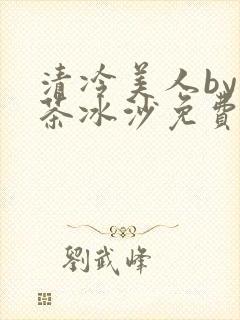 清冷美人by
茶冰沙免費
劉武峰